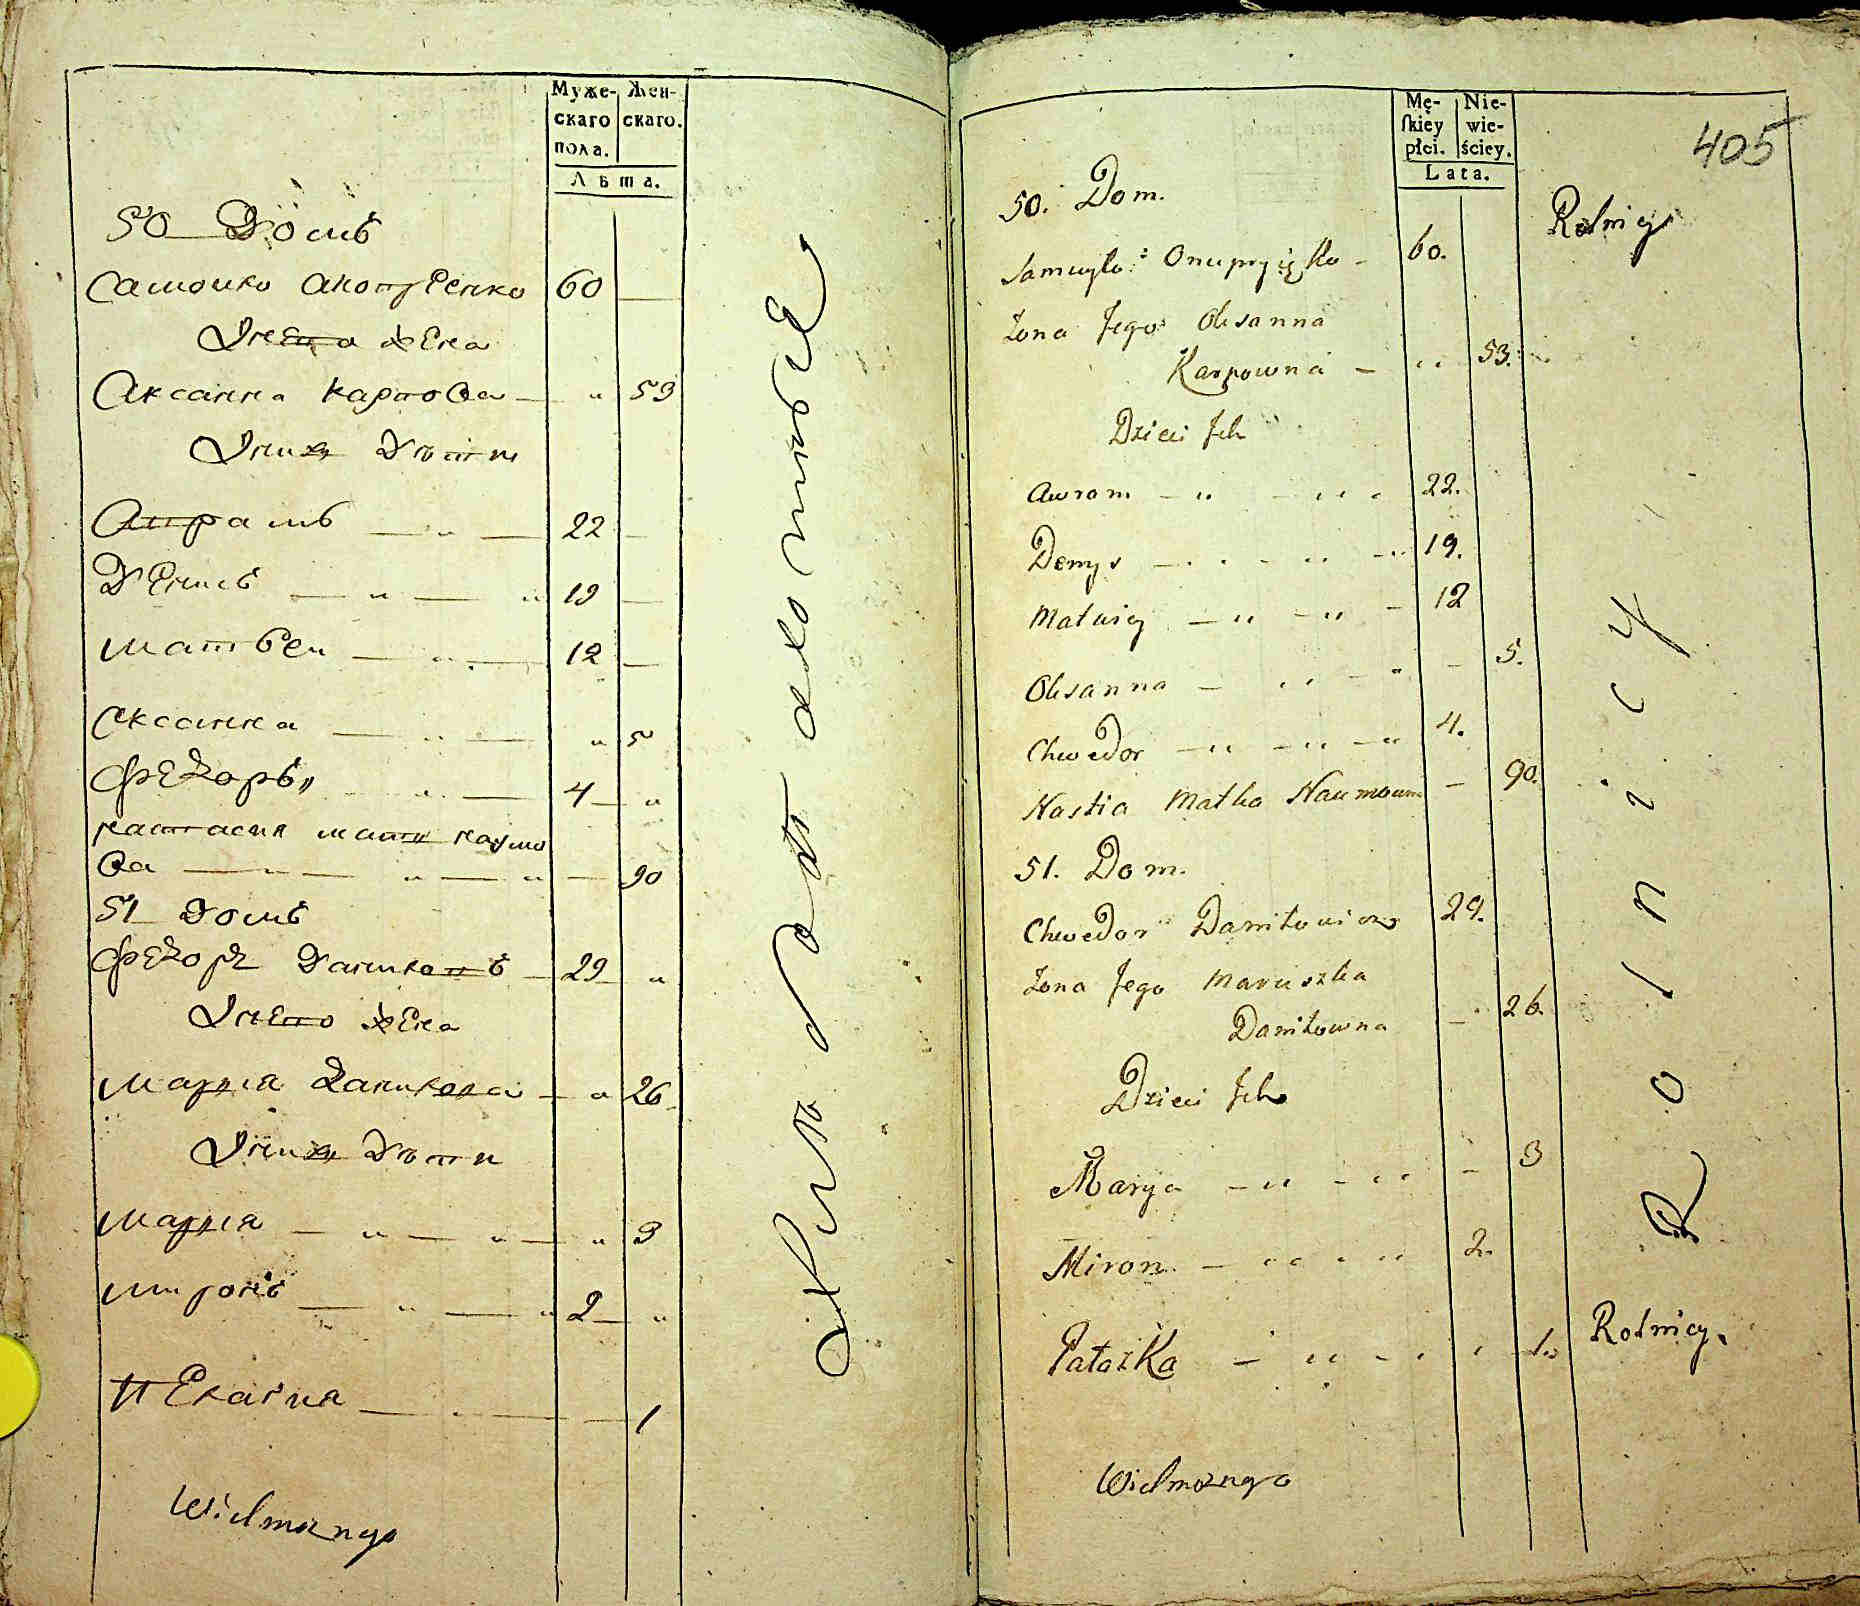 Муже-
скаго
пола.
Жен-
скаго.
Лѣта.
50 Домъ
Самойло 60
Инего жена
Аксанна Карпова 53
Инихъ дѣти
Аврамъ 22
Денисъ 19
Матвеи 12
Аксанна 5
Федоръ 4
Настасия мати Наумо
ва 90
51 Домъ
Федоръ Даниловъ 29
Инего жена
Мария Данилова 26
Инихъ дѣти
Мария 3
Миронъ 2
Пелагия 1
Wielmożnego
Хлѣбопашцы
405
Mę-
ſkiey
płci.
Nie-
wie-
ściey.
Lata.
50. Dom.
Rolnicy
Samuyło Onupryiko 60.
Zona Jego Oksanna
Karpowna 53.
Dzieci Ich
Awram 22.
Demys 19.
Matwiey 12
Oksanna 5.
Chwedor 4.
Nastia Matka Naumowna 90.
51. Dom.
Chwedor Daniłowicz 29.
Zona Jego Maruszka
Daniłowna 26.
Dzieci Ich
Marya 3
Miron 2.
Pałażka 1.
Rolnicy.
Wielmożnego
Rolnicy